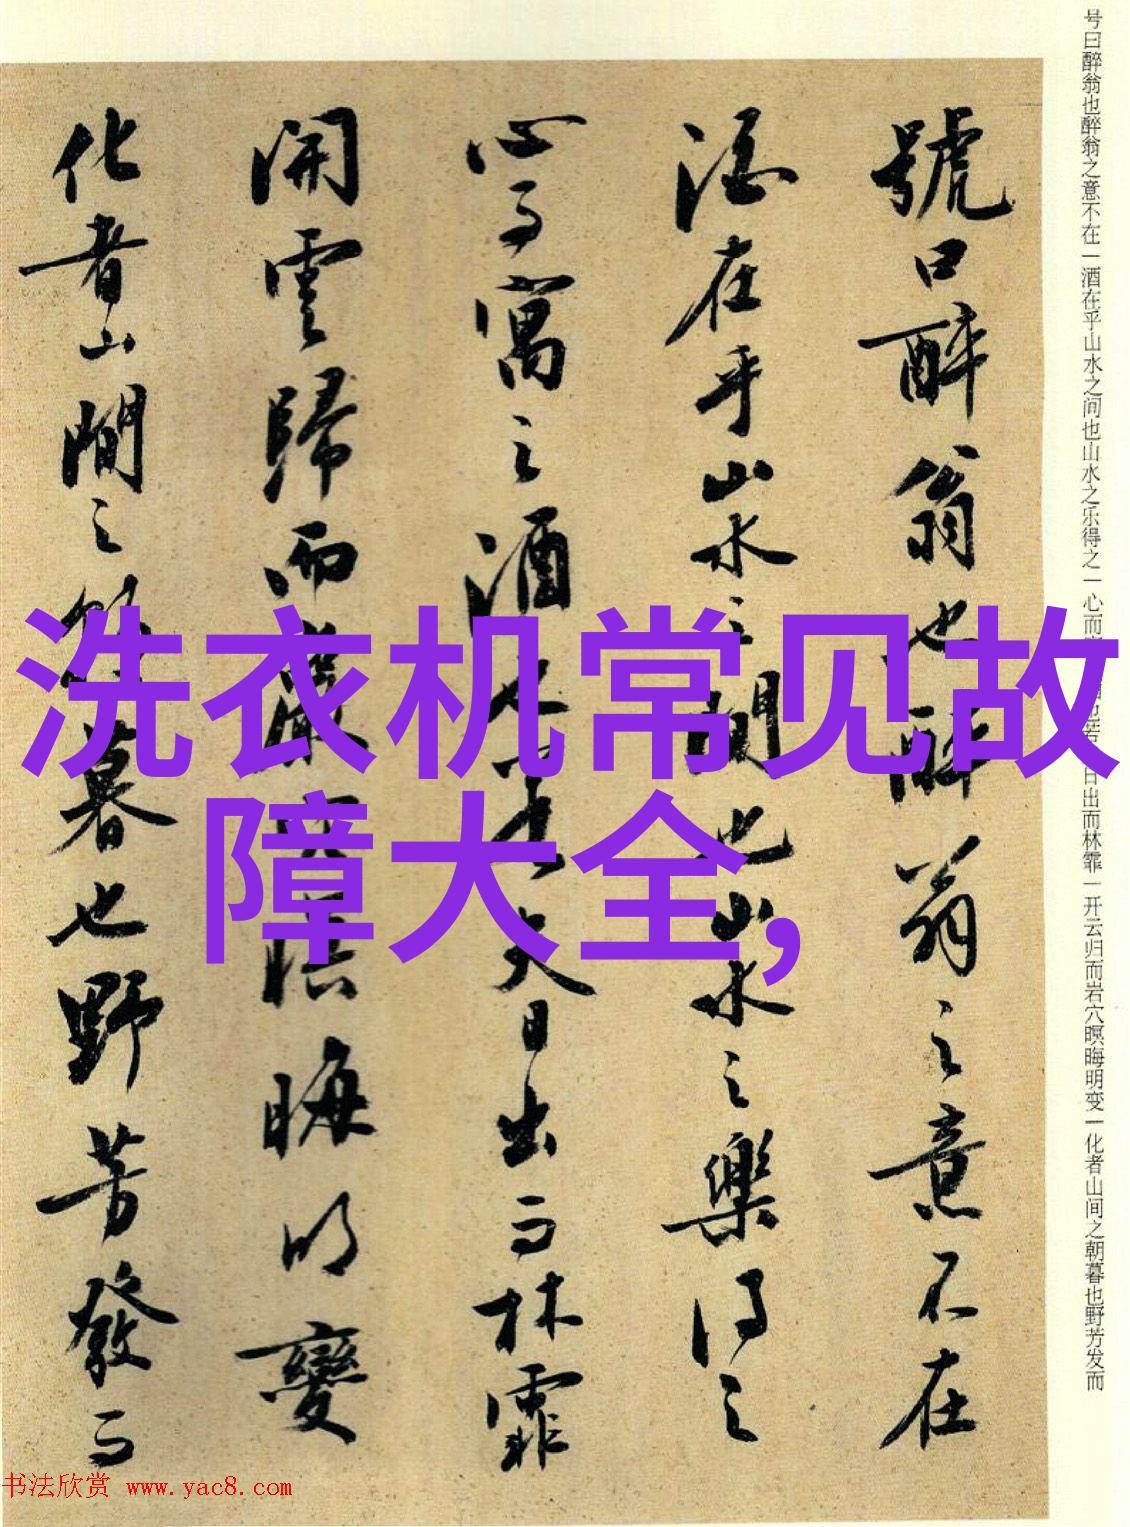 號曰醉翁也醉翁之意不在
酒在乎山水之間也山水之樂得之
心而寓之酒也若夫日出而林霏
開雲歸而巖穴暝晦明變
化者山間之朝暮也野芳發而
号曰醉翁也醉翁之意不在一酒在乎山水之间也山水之乐得之一心而
也若
日出而林霏一开云归而岩穴暝晦明变一化者山间之朝暮也野芳发而
洗衣机常见故
障大全,
书法欣赏 www.yac8.com